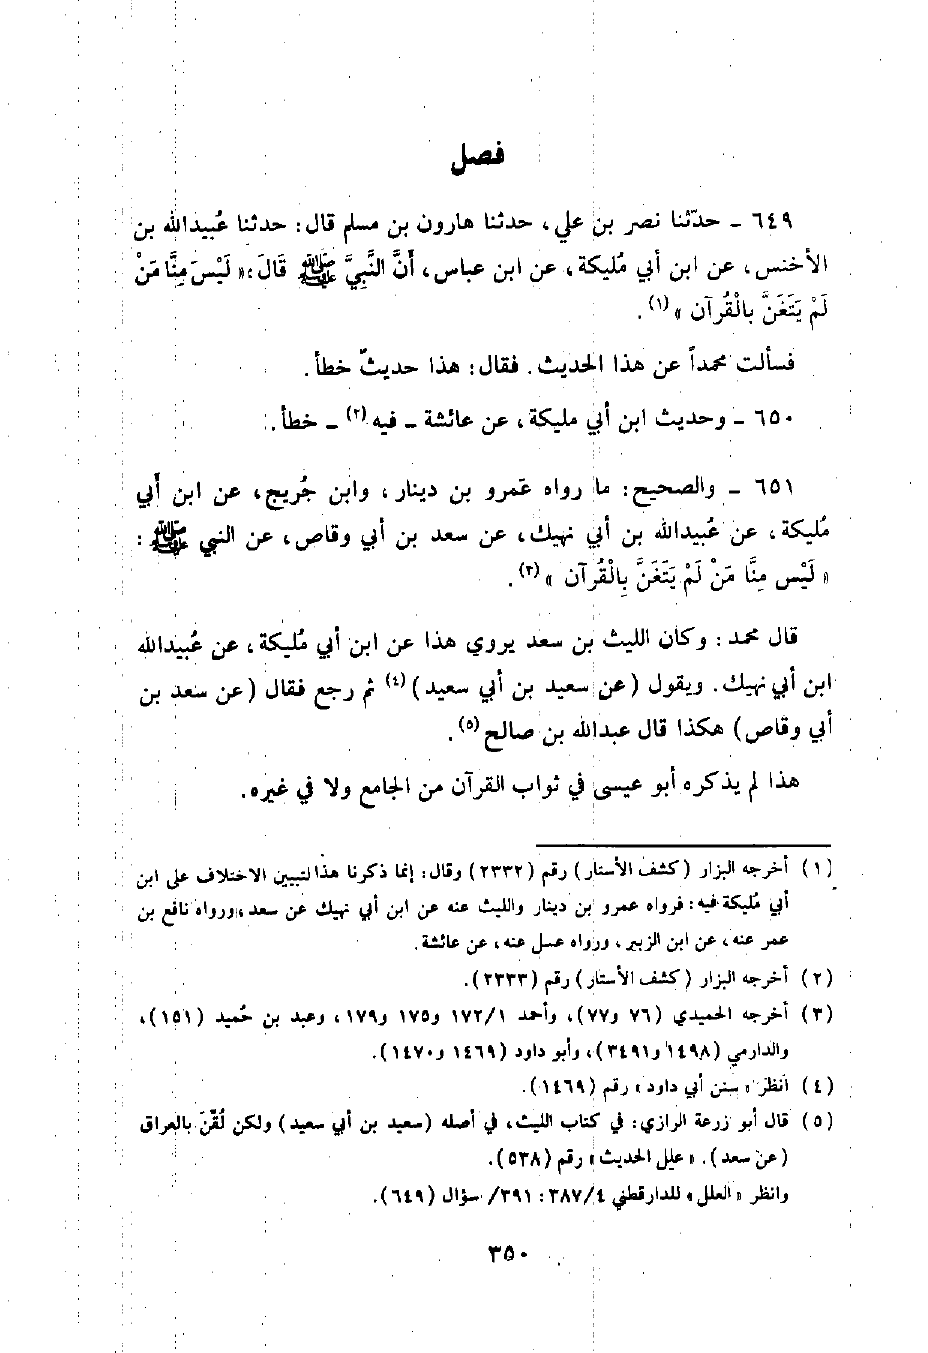 فصل
٦٤٩ ـ حدّثنا نصر بن علي، حدثنا هارون بن مسلم قال: حدثنا عُبيدالله بن
الأخنس، عن ابن أبي مُليكة، عن ابن عباس، أَنَّ النَّبِيَّ ﷺ قَالَ: « لَيْسَ مِنَّا مَنْ
لَمْ يَتَغَنَّ بالْقُرآن »(١).
فسألت محمداً عن هذا الحديث. فقال: هذا حديثٌ خطأ.
٦٥٠ ـ وحديث ابن أبي مليكة، عن عائشة ـ فيه(٢) ـ خطأ.
٦٥١ ـ والصحيح: ما رواه عَمرو بن دينار، وابن جُريج، عن ابن أبي
مُليكة، عن عُبيدالله بن أبي نهيك، عن سعد بن أبي وقاص، عن النبي ﷺ:
« لَيْس مِنَّا مَنْ لَمْ يَتَغَنَّ بِالْقُرآن »(٣).
قال محمد: وكان الليث بن سعد يروي هذا عن ابن أبي مُليكة، عن عُبيدالله
ابن أبي نهيك. ويقول (عن سعيد بن أبي سعيد)(٤) ثم رجع فقال (عن سعد بن
أبي وقاص) هكذا قال عبدالله بن صالح(٥).
هذا لم يذكره أبو عيسى في ثواب القرآن من الجامع ولا في غيره.
(١) أخرجه البزار (كشف الأستار) رقم (٢٣٣٢) وقال: إنما ذكرنا هذا لتبيين الاختلاف على ابن
أبي مُليكة فيه: فرواه عمرو بن دينار والليث عنه عن ابن أبي نهيك عن سعد، ورواه نافع بن
عمر عنه، عن ابن الزبير، ورواه عسل عنه، عن عائشة.
(٢) أخرجه البزار (كشف الأستار) رقم (٢٣٣٣).
(٣) أخرجه الحميدي (٧٦ و٧٧)، وأحمد ١٧٢/١ و١٧٥ و١٧٩، وعبد بن حُميد (١٥١)،
والدارمي (١٤٩٨ و٣٤٩١)، وأبو داود (١٤٦٩ و١٤٧٠).
(٤) انظر « سنن أبي داود » رقم (١٤٦٩).
(٥) قال أبو زرعة الرازي: في كتاب الليث، في أصله (سعيد بن أبي سعيد) ولكن لُقّنَ بالعراق
(عن سعد). « علل الحديث » رقم (٥٣٨).
وانظر « العلل » للدارقطني ٣٨٧/٤: ٣٩١/ سؤال (٦٤٩).
٣٥٠